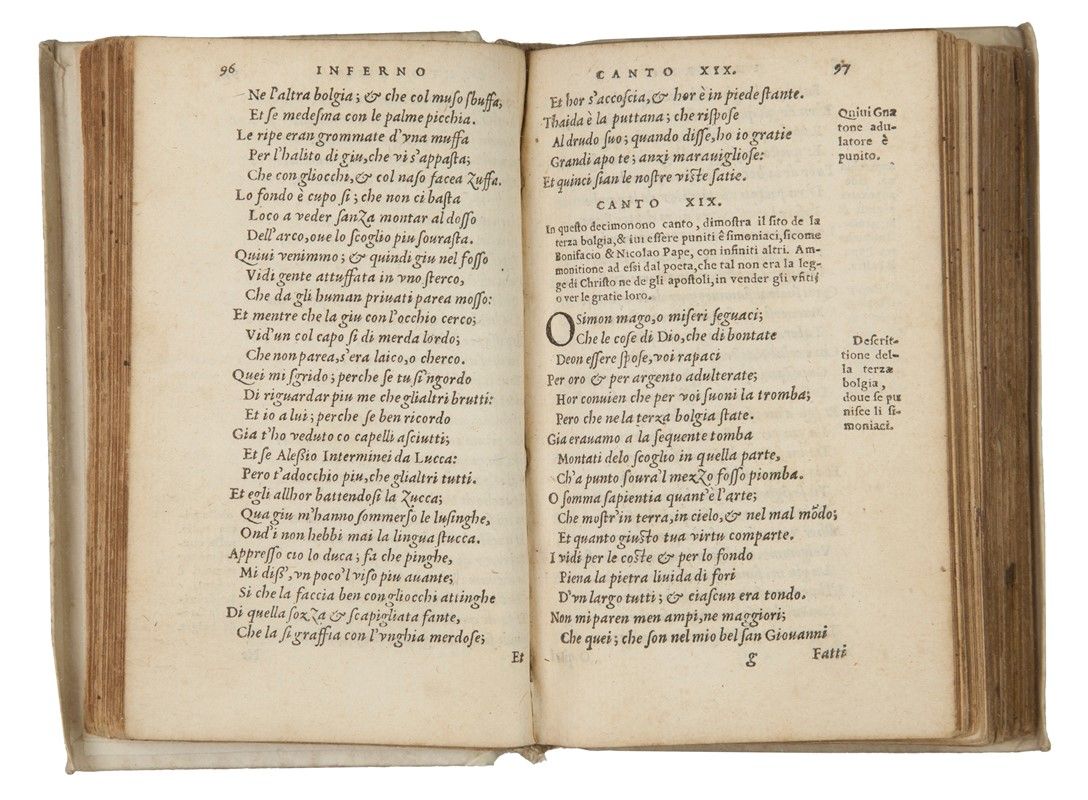 96 INFERNO
Ne l'altra bolgia; & che col muso sbuffa,
Et se medesma con le palme picchia.
Le ripe eran grommate d'vna muffa
Per l'halito di giu, che vi s'appasta;
Che con gliocchi, & col naso facea Zuffa.
Lo fondo è cupo si; che non ci basta
Loco a veder sanZa montar al dosso
Dell'arco, oue lo scoglio piu sourasta.
Quiui venimmo; & quindi giu nel fosso
Vidi gente attuffata in vno sterco,
Che da gli human priuati parea mosso:
Et mentre che la giu con l'occhio cerco;
Vid'un col capo si di merda lordo;
Che non parea, s'era laico, o cherco.
Quei mi sgrido; perche se tu si'ngordo
Di riguardar piu me che glialtri brutti:
Et io a lui; perche se ben ricordo
Gia t'ho veduto co capelli asciutti;
Et se Alessio Interminei da Lucca:
Pero t'adocchio piu, che glialtri tutti.
Et egli allhor battendosi la Zucca;
Qua giu m'hanno sommerso le lusinghe,
Ond'i non hebbi mai la lingua stucca.
Appresso cio lo duca; fa che pinghe,
Mi diss', vn poco'l viso piu auante;
Si che la faccia ben con gliocchi attinghe
Di quella soZZa & scapigliata fante,
Che la si graffia con l'vnghia merdose;
Et
CANTO XIX. 97
Et hor s'accoscia, & hor è in piede stante.
Thaida è la puttana; che rispose
Al drudo suo; quando disse, ho io gratie
Grandi apo te; anzi marauigliose:
Et quinci sian le nostre viste satie.
Quiui Gna
tone adu-
latore è
punito.
CANTO XIX.
In questo decimonono canto, dimostra il sito de la
terza bolgia, & iui essere puniti ê simoniaci, sicome
Bonifacio & Nicolao Pape, con infiniti altri. Am-
monitione ad essi dal poeta, che tal non era la leg-
ge di Christo ne de gli apostoli, in vender gli vfitij
o ver le gratie loro.
O Simon mago, o miseri seguaci;
Che le cose di Dio, che di bontate
Deon essere spose, voi rapaci
Per oro & per argento adulterate;
Hor conuien che per voi suoni la tromba;
Pero che ne la terza bolgia state.
Descrit-
tione del-
la terza
bolgia,
doue se pu
nisce li si-
moniaci.
Gia erauamo a la sequente tomba
Montati delo scoglio in quella parte,
Ch'a punto soura'l mezZo fosso piomba.
O somma sapientia quant'è l'arte;
Che mostr'in terra, in cielo, & nel mal mōdo;
Et quanto giusto tua virtu comparte.
I vidi per le coste & per lo fondo
Piena la pietra liuida di fori
D'vn largo tutti; & ciascun era tondo.
Non mi paren men ampi, ne maggiori;
Che quei; che son nel mio bel san Giouanni
g Fatti